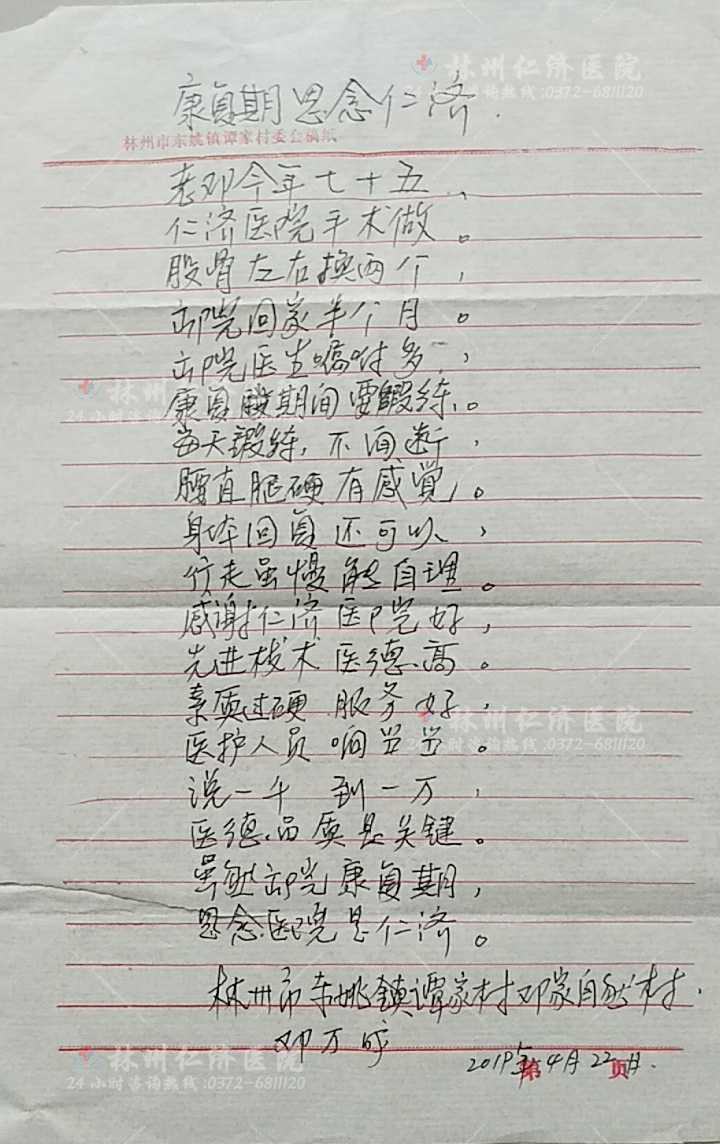 林州仁济医院
24小时咨询热线:0372-6811120
康复期思念仁济.
林州市东姚镇谭家村委会稿纸
老邓今年七十五、
仁济医院手术做。
股骨左右换两个，
出院回家半个月。
出院医生嘱咐多，
林州仁济医院
24小时咨询
康复期间要锻练。
每天锻练,不间断，
腰直腿硬有感觉。
身体回复还可以、，
行走虽慢能自理。
感谢仁济医院好，
先进技术医德高。
素质过硬服务好，
林州仁济医院
医护人员响当当。
24小时咨询热线:0372-6811120
说一千 到一万，
医德品质是关键。
虽然出院康复期，
思念医院是仁济。
林州市东姚镇谭家村邓家自然村.
邓万
林州仁济医院
24小时咨询热线:0372-6811120
2019年4月22日.
第 页